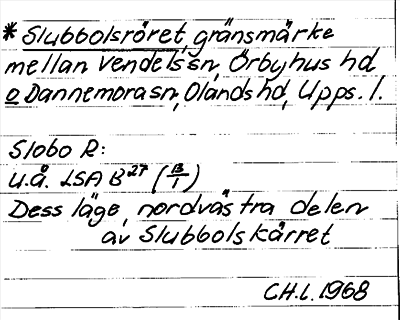 * Slubbolsröret, gränsmärke
mellan Vendels sn, Örbyhus hd
o Dannemora sn, Olands hd, Upps. l.
Slobo R:
u.å. LSA B²⁷ (B/1)
Dess läge, nordvästra delen
av Slubbolskärret
CH.L. 1968